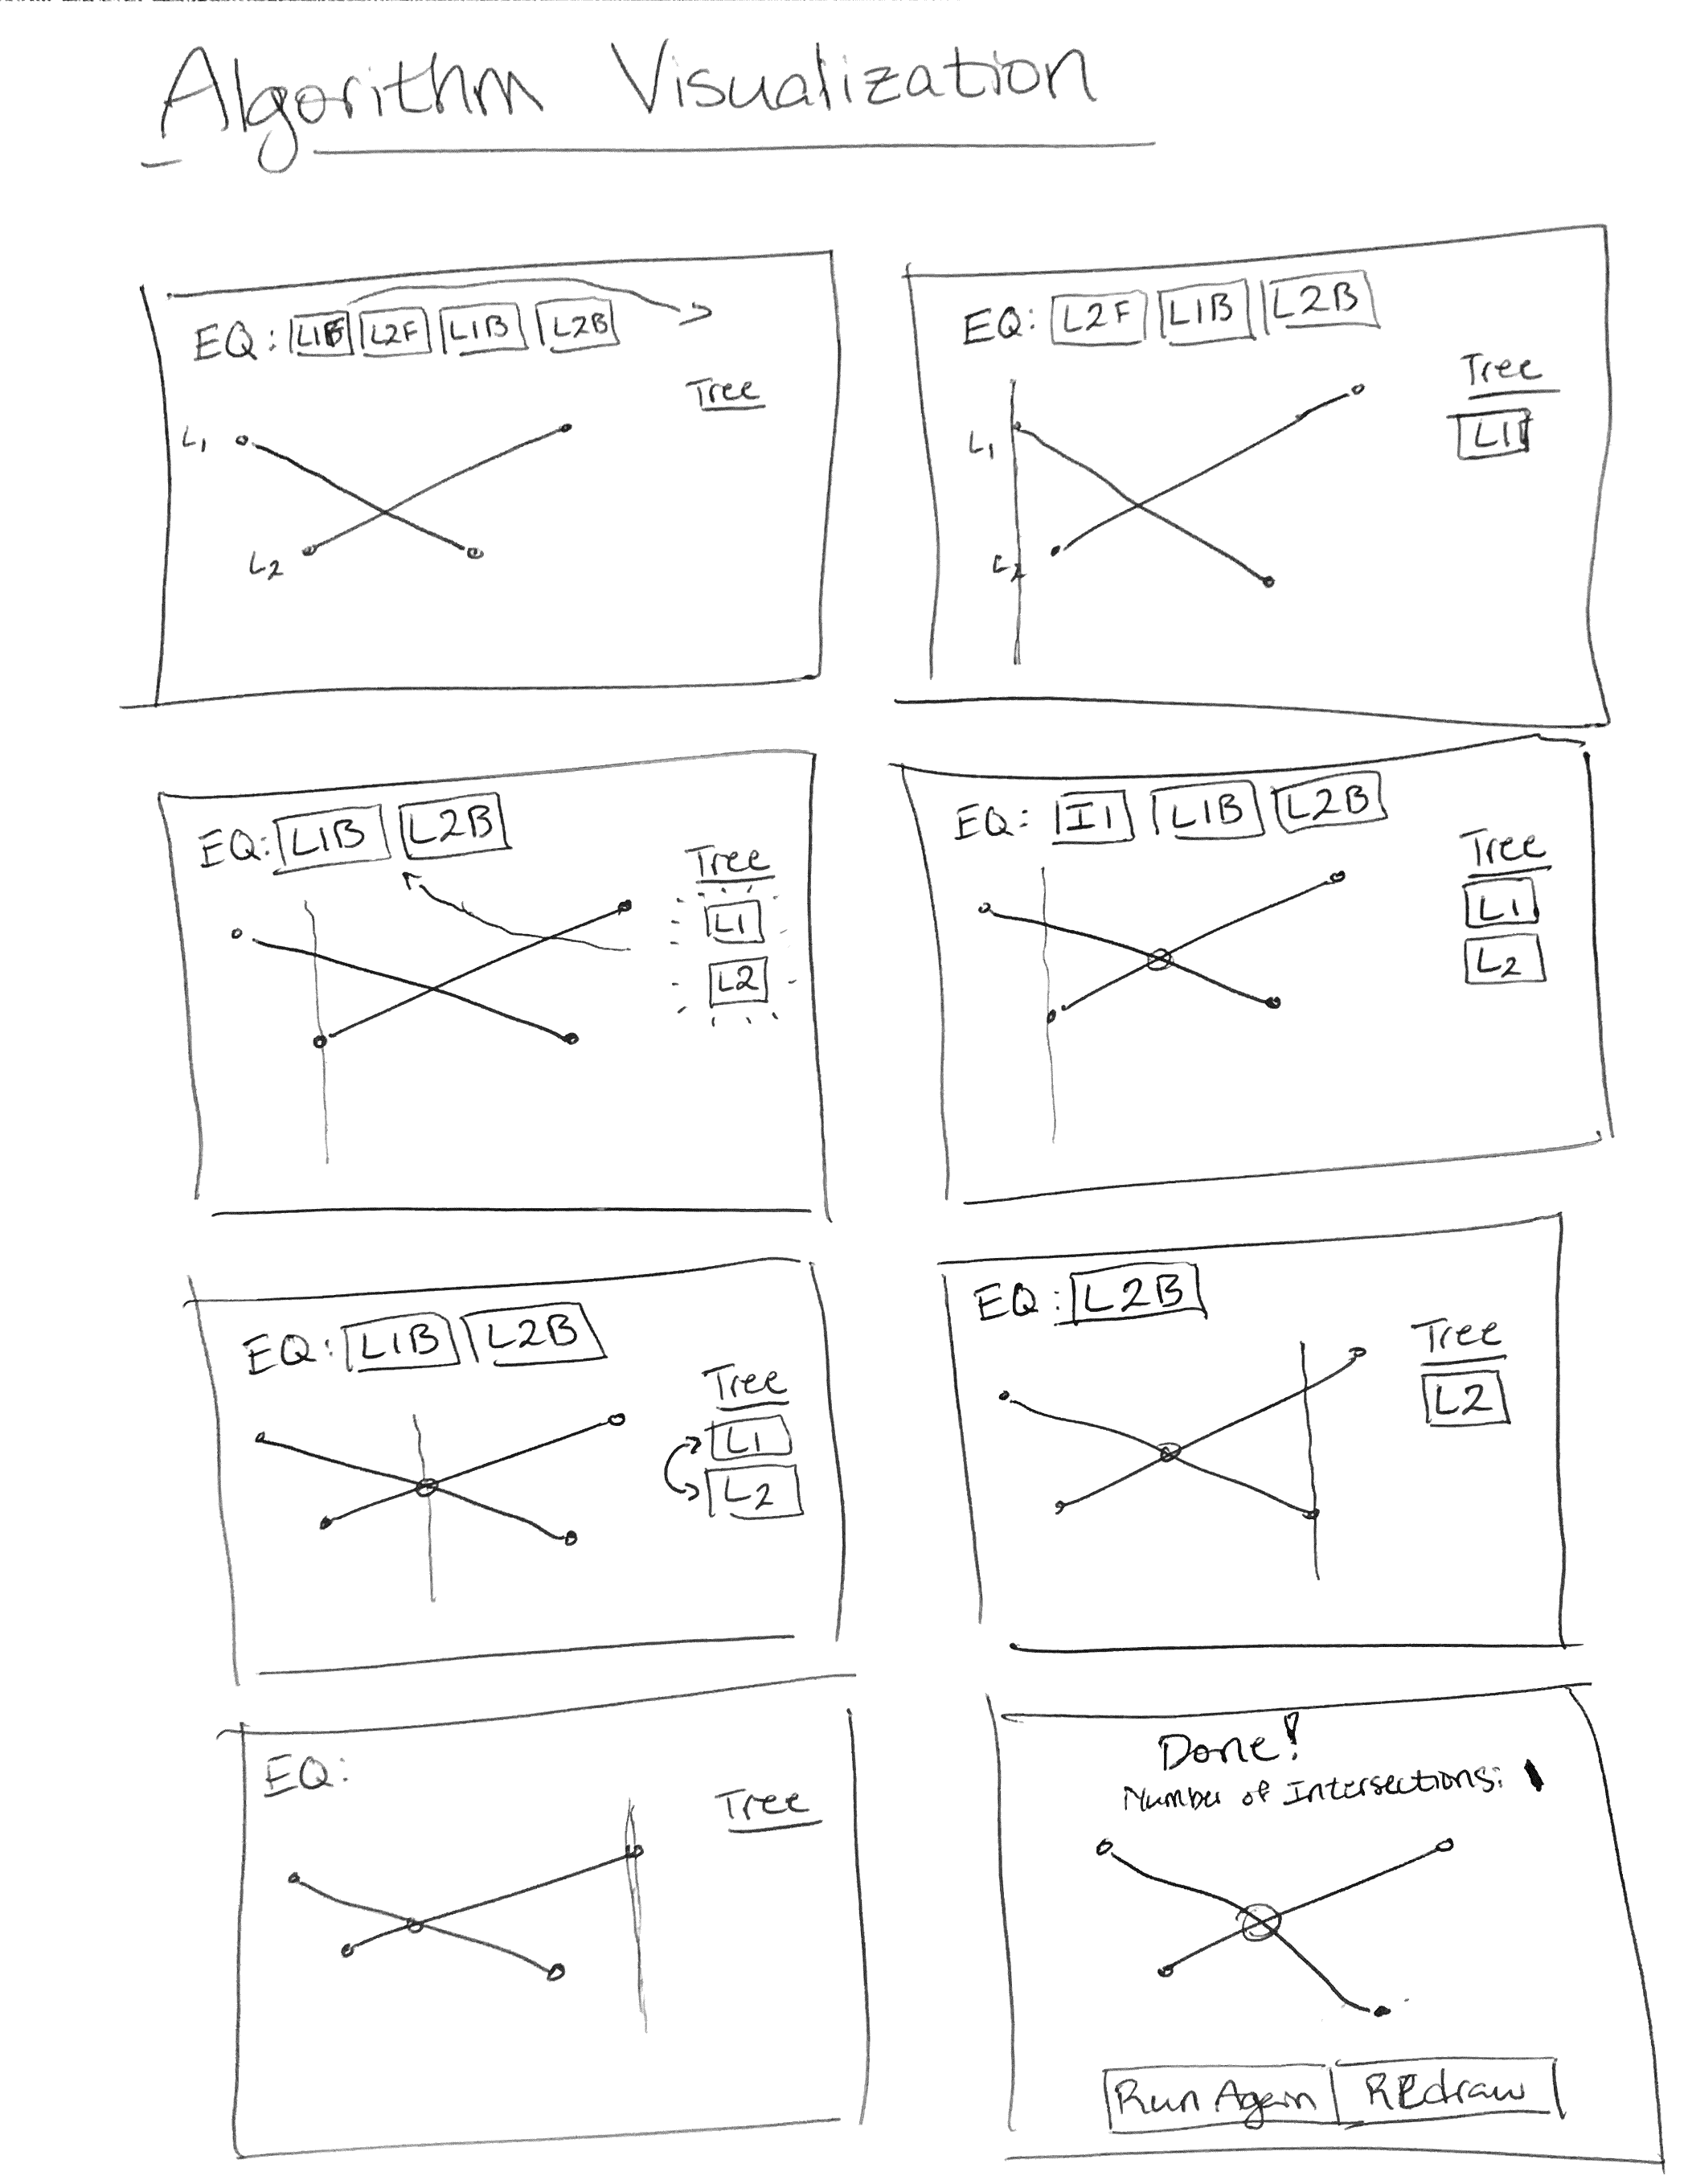 Algorithm Visualization
EQ: L1F L2F L1B L2B
Tree
L1
L2
EQ: L2F L1B L2B
Tree
L1
L1
L2
EQ: L1B L2B
Tree
L1
L2
EQ: I1 L1B L2B
Tree
L1
L2
EQ: L1B L2B
Tree
L1
L2
EQ: L2B
Tree
L2
EQ:
Tree
Done!
Number of Intersections: 1
Run Again REdraw